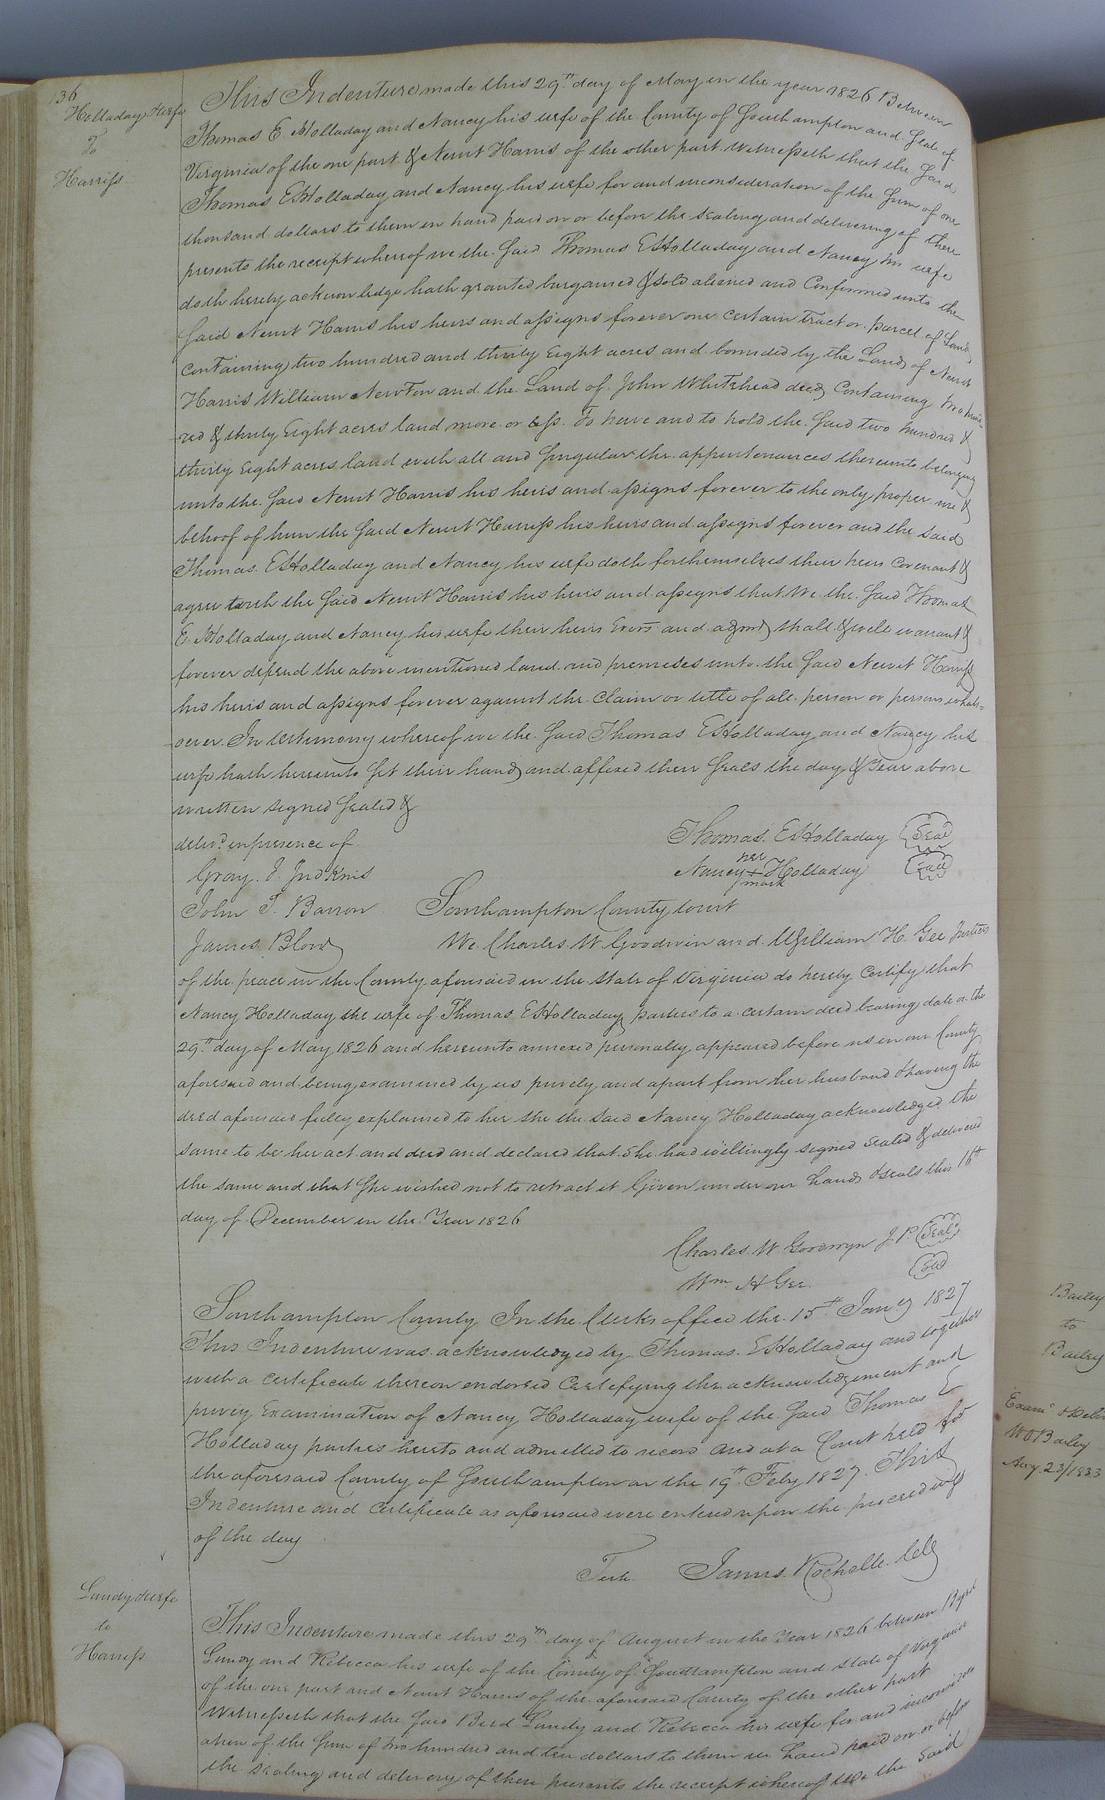 136
Holladay & wife
To
Harriss
This Indenture made this 29th day of May in the year 1826 Between
Thomas E Holladay and Nancy his wife of the County of Southampton and State of
Virginia of the one part & Newit Harris of the other part Witnesseth that the Said
Thomas E Holladay and Nancy his wife for and inconsideration of the Sum of one
thousand dollars to them in hand paid on or before the sealing and delivering of these
presents the receipt whereof we the Said Thomas E Holladay and Nancy his wife
doth hereby acknowledge hath granted bargained & sold aliened and Confirmed unto the
Said Newit Harris his heirs and assigns forever one certain tract or parcel of Land
containing two hundred and thirty Eight acres and bounded by the Lands of Newit
Harris William Newton and the Land of John Whitehead decd Containing two hund-
red & thirty Eight acres land more or less. To have and to hold the Said two hundred &
thirty Eight acres land with all and Singular the appurtenances thereunto belonging
unto the Said Newit Harris his heirs and assigns forever to the only proper use &
behoof of him the Said Newit Harriss his heirs and assigns forever and the said
Thomas E Holladay and Nancy his wife doth for themselves their heirs Covenant &
agree with the Said Newit Harris his heirs and assigns that We the Said Thomas
E Holladay and Nancy his wife their heirs Exors and admrs shall & will warrant &
forever defend the above mentioned land and premises unto the Said Newit Harriss
his heirs and assigns forever against the Claim or title of all person or persons whats-
oever. In testimony whereof we the Said Thomas E Holladay and Nancy his
wife hath hereunto Set their hands and affixed their Seals the day & Year above
written signed Sealed &
delivd in presence of
Thomas E Holladay Seal
her
Nancy + Holladay Seal
mark
Gray J Judkins
John T Barron
James Blow
Southampton County Court
We Charles W Goodwin and William H. Gee Justices
of the peace in the County aforesaid in the State of Virginia do hereby Certify that
Nancy Holladay the wife of Thomas E Holladay parties to a certain deed bearing date on the
29th day of May 1826 and hereunto annexed personally appeared before us in our County
aforesaid and being examined by us privily and apart from her husband & having the
deed aforesaid fully explained to her she the said Nancy Holladay acknowledged the
same to be her act and deed and declared that She had willingly signed Sealed & delivered
the same and that She wished not to retract it Given under our hands & seals this 16th
day of December in the Year 1826
Charles W Goodwyn J.P Seal
Wm H Gee Seal
Southampton County In the Clerks office the 15th Jany 1827
This Indenture was acknowledged by Thomas E Holladay and together
with a Certificate thereon endorsed Certifying the acknowledgement and
privey Examination of Nancy Holladay wife of the Said Thomas E
Holladay parties hereto and admitted to record and at a Court held for
the aforesaid County of Southampton on the 19th Feby 1827 This
Indenture and Certificate as aforesaid were entered upon the proceedings
of the day
Teste James Rochelle Clk
Lundy & wife
to
Harriss
This Indenture made this 29th day of August in the Year 1826 between Byrd
Lundy and Rebecca his wife of the County of Southampton and State of Virginia
of the one part and Newit Harris of the aforesaid County of the other part
Witnesseth that the Said Bird Lundy and Rebecca his wife for and inconsider
ation of the Sum of two hundred and ten dollars to them in hand paid on or before
the sealing and delivery of these presents the receipt whereof We the said
Bailey
to
Bailey
Examd & Deld
Bailey
Aug 23/1833